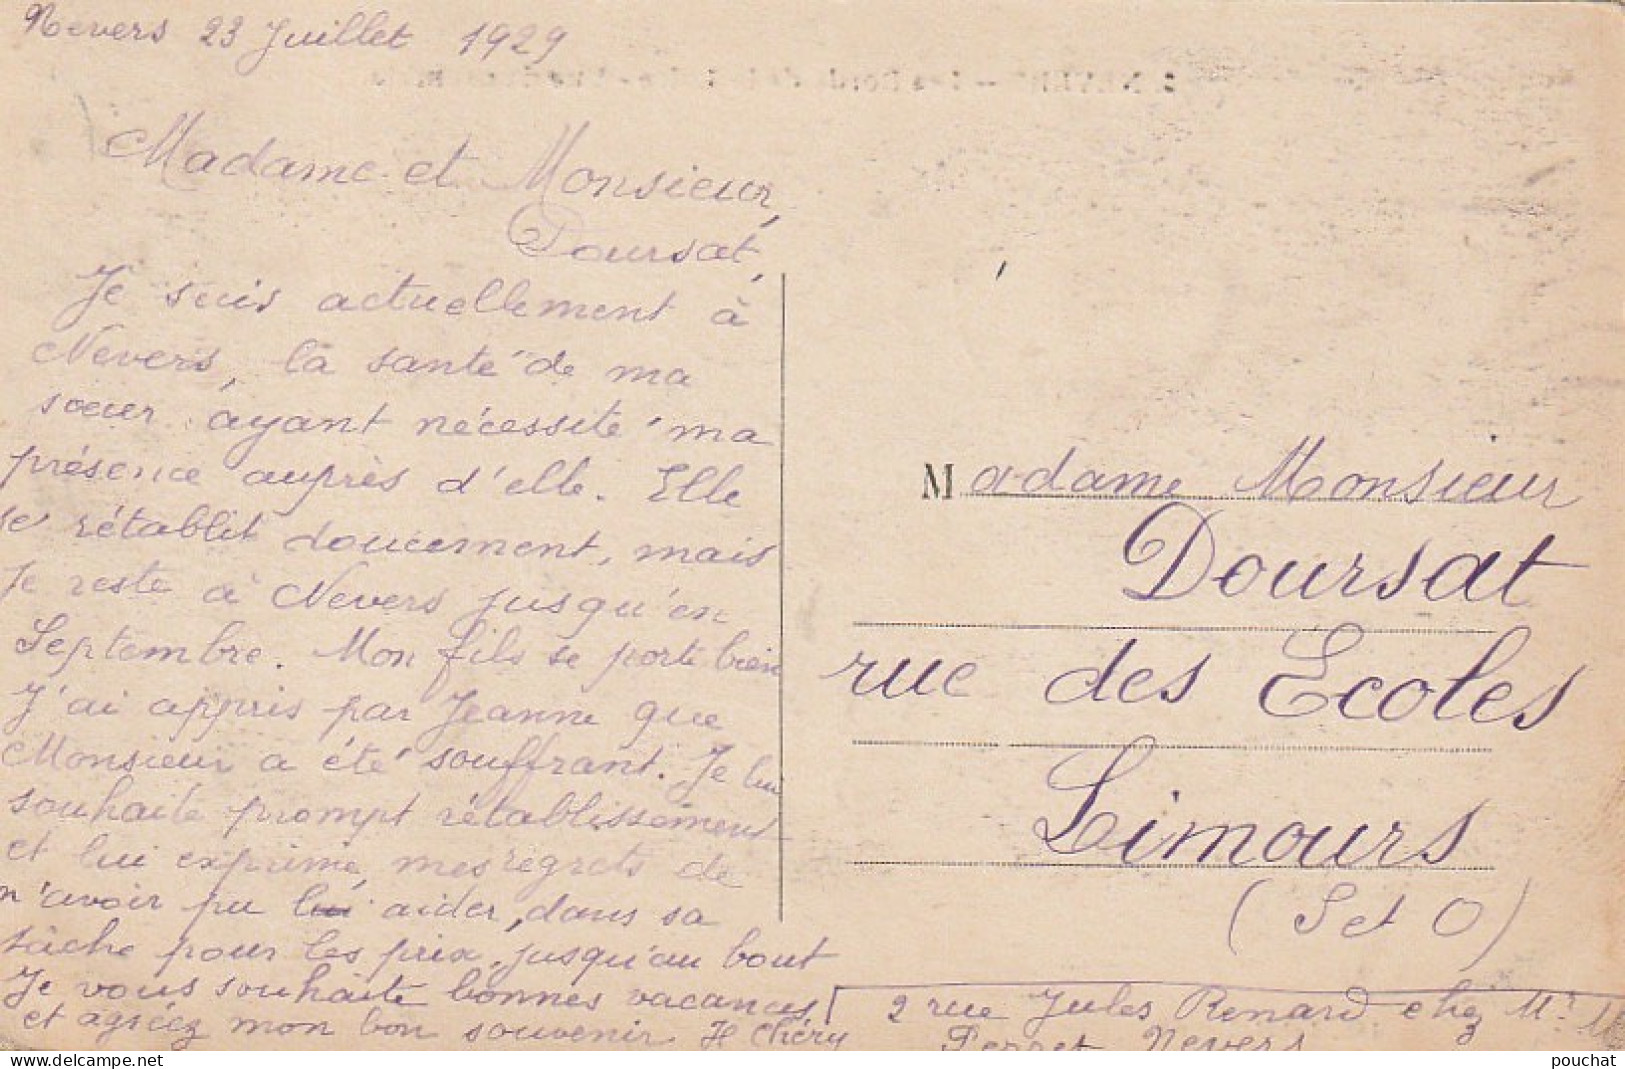 Nevers 23 Juillet 1929
Madame et Monsieur,
Doursat,
Je suis actuellement à
Nevers, la santé de ma
sœur ayant nécessité ma
présence auprès d'elle. Elle
se rétablit doucement, mais
je reste à Nevers jusqu'en
Septembre. Mon fils se porte bien
J'ai appris par Jeanne que
Monsieur a été souffrant. Je lui
souhaite prompt rétablissement
et lui exprime, mes regrets de
n'avoir pu lui aider, dans sa
tâche pour les prix, jusqu'au bout
Je vous souhaite bonnes vacances,
et agréez mon bon souvenir. H Chéry
Madame Monsieur
Doursat
rue des Ecoles
Limours
(S et O)
2 rue Jules Renard chez Mr
Perret Nevers
pouchat
delcampe.net